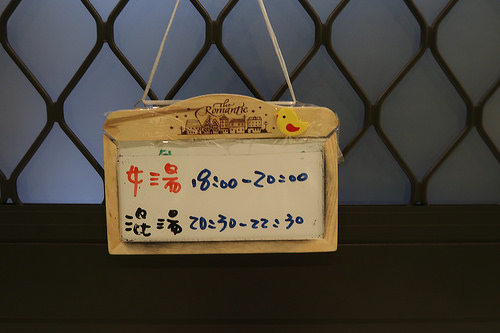 The
Romantic
女湯 18:00-20:00
混湯 20:30-22:30